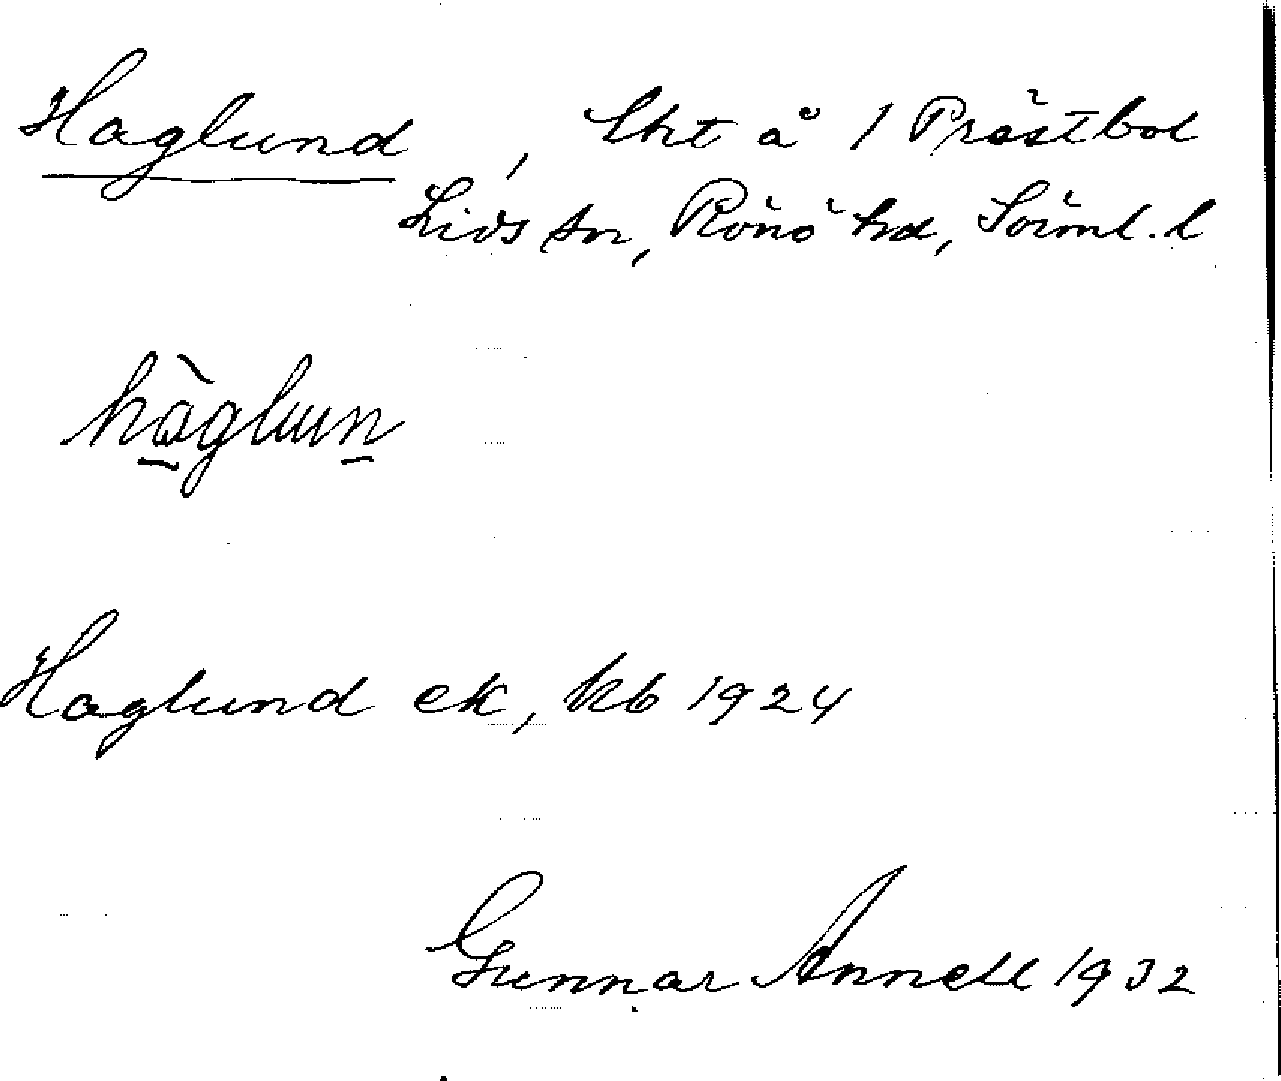 Haglund, lht å 1 Prästbol
Lids sn, Rönö hd, Sörml. l
hàglun
Haglund ek, kb 1924
Gunnar Annell 1932